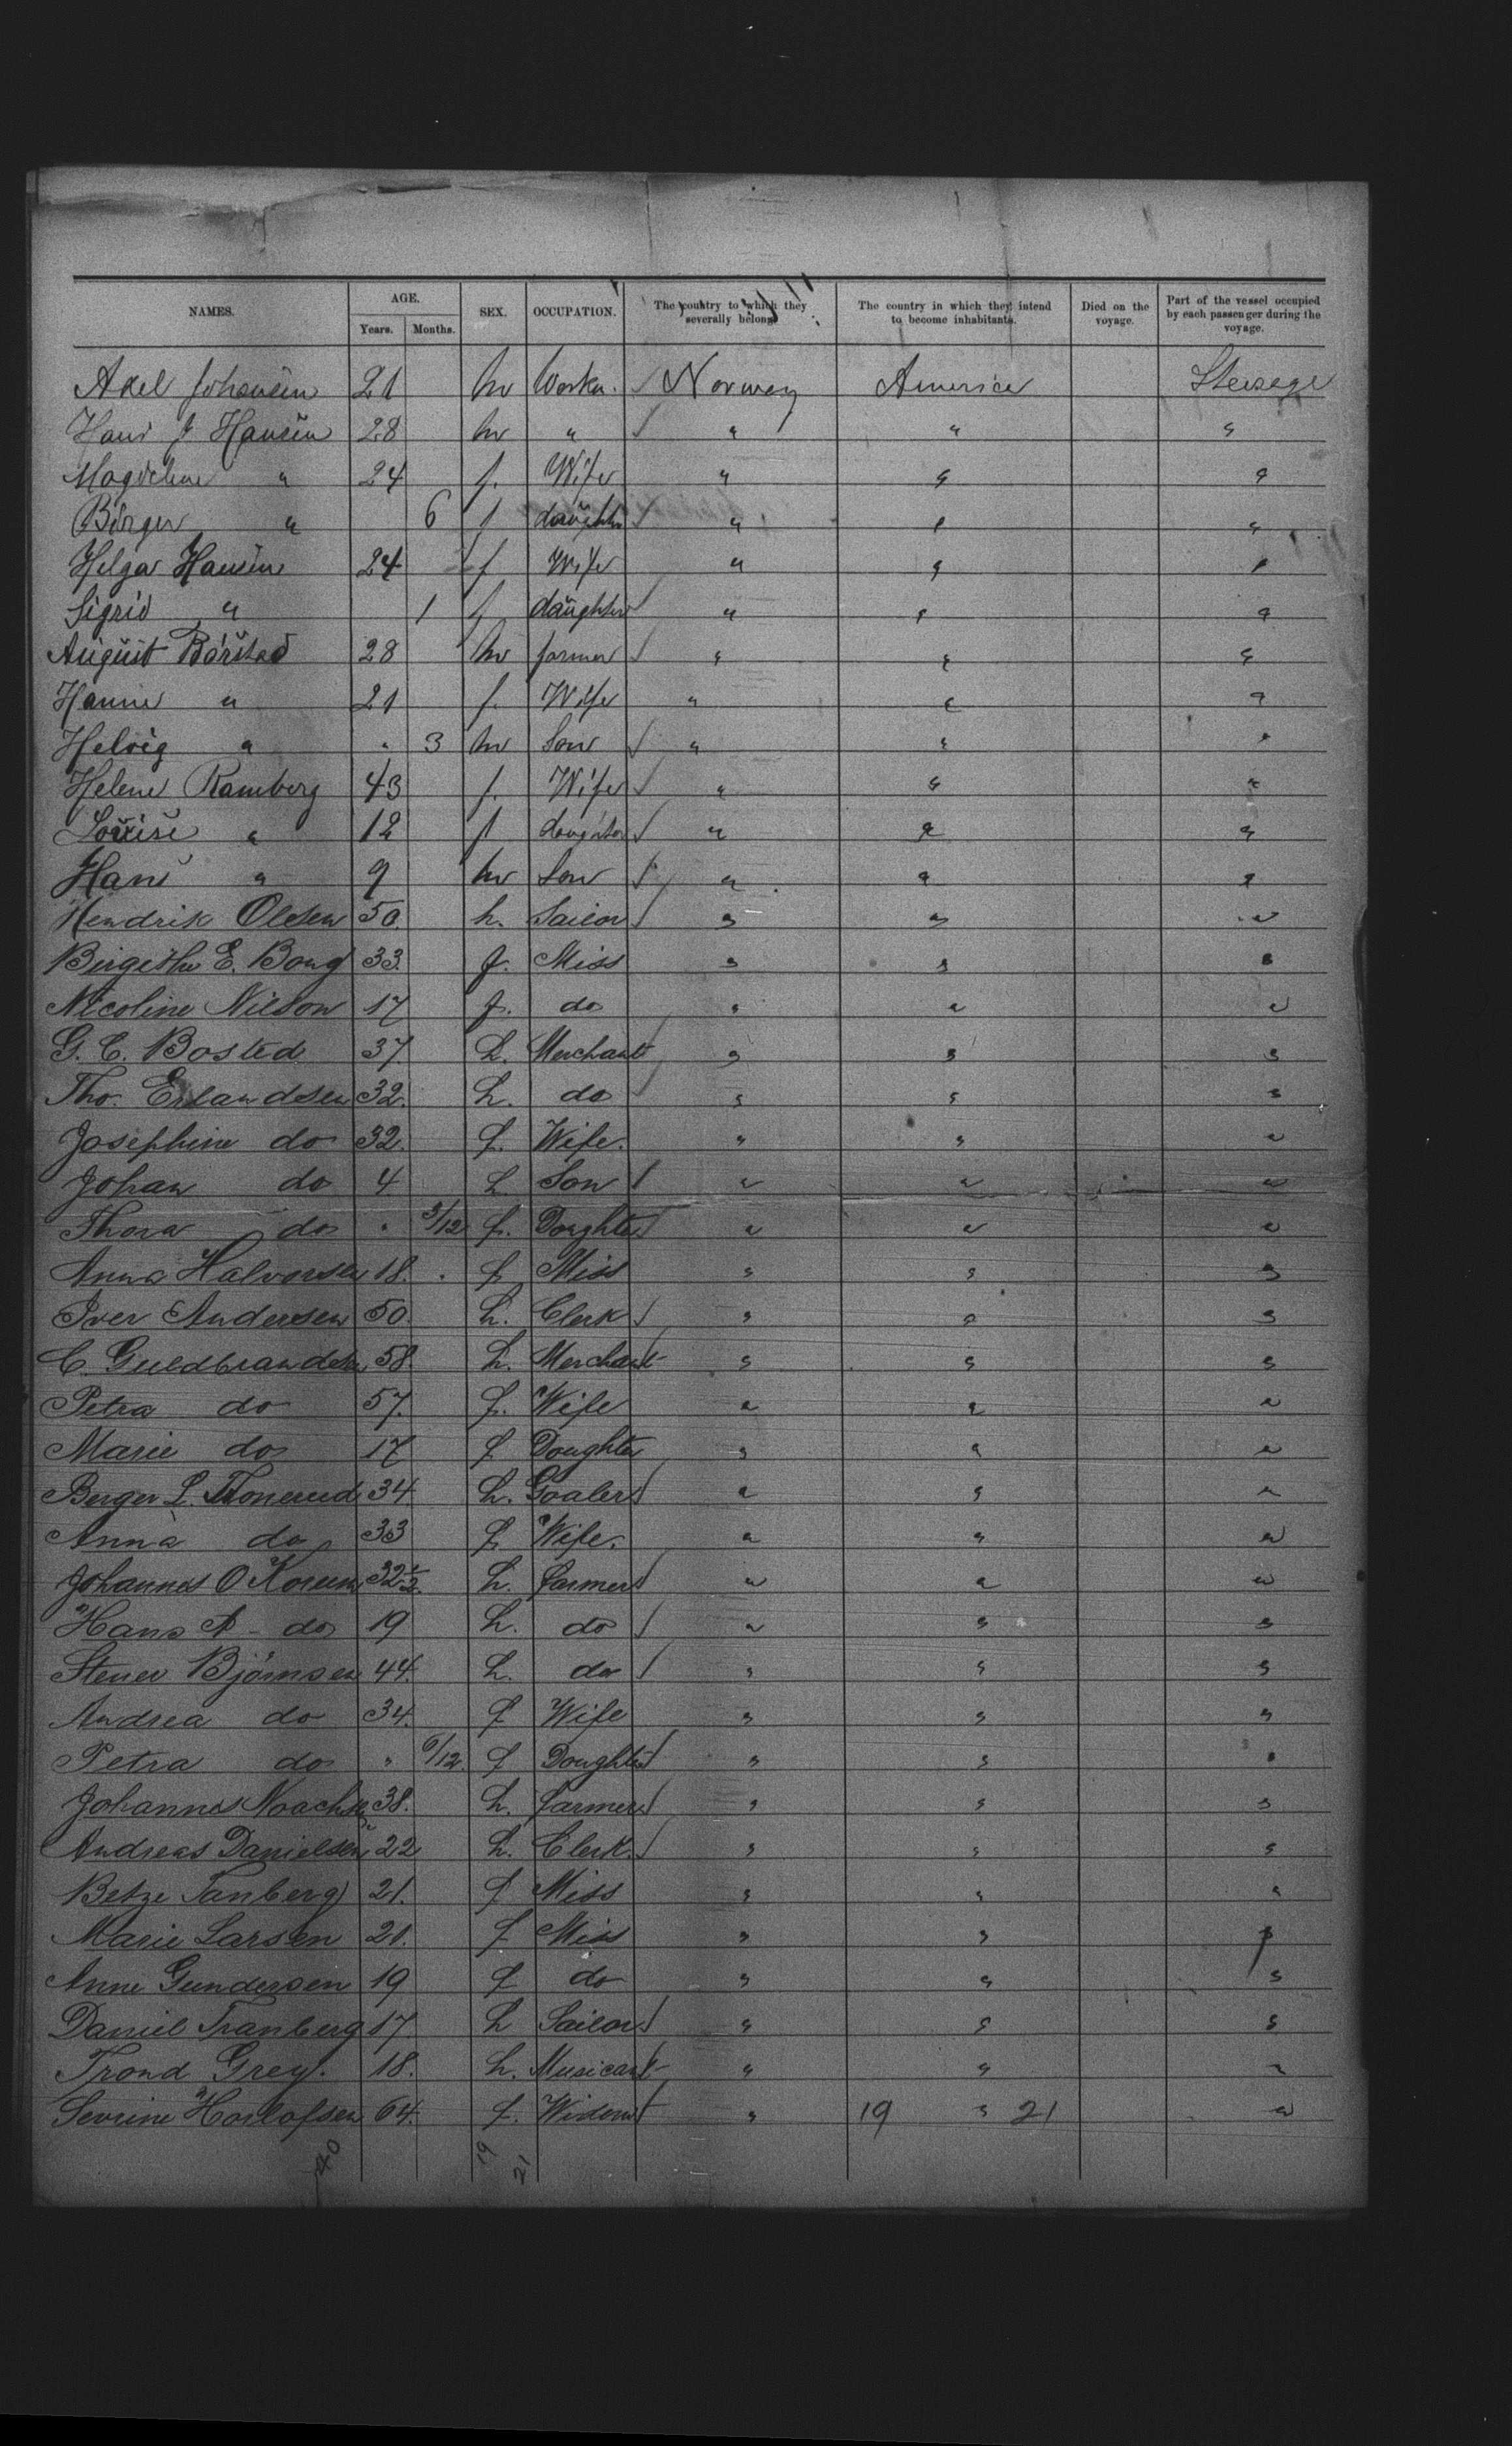 NAMES. AGE. Years. Months. SEX. OCCUPATION. The country to which they severally belong. The country in which they intend to become inhabitants. Died on the voyage. Part of the vessel occupied by each passenger during the voyage.
Axel Johansen 21 m Worker. Norway America Steerage
Hans J Hansen 28 m " " " "
Magdelene " 24 f. Wife " " "
Börger " 6 f daughter " " "
Helga Hansen 24 f Wife " " "
Sigrid " 1 f daughter " " "
August Bårstad 28 m farmer " " "
Hanne " 21 f. Wife " " "
Helvig " " 3 m Son " " "
Helene Ramberg 43 f. Wife " " "
Louise " 12 f daughter " " "
Hans " 9 m Son " " "
Hendrik Olesen 50. h. Sailor " " "
Birgithe E. Boug 33. f. Miss " " "
Nicoline Nilson 17 f. do " " "
G. C. Bosted 37. h. Merchant " " "
Tho. Erlandsen 32. h. do " " "
Josephine do 32. f. Wife. " " "
Johan do 4 h. Son " " "
Thora do " 3/12 f. Doughter " " "
Anna Halvorsen 18. f Miss " " "
Iver Andersen 50. h. Clerk " " "
C. Guldbrandsen 58. h. Merchant " " "
Petra do 57. f. Wife " " "
Marie do 17 f Doughter " " "
Berger L. 34. h. Goaler " " "
Anna do 33 f. Wife. " " "
Johannes O 32½. h. farmer " " "
Hans A - do 19 h. do " " "
Stener Björnsen 44. h. do " " "
Andrea do 34. f Wife " " "
Petra do " 6/12. f Doughter " " "
Johannes Noachsen 38. h. farmer " " "
Andreas Danielsen 22 h. Clerk. " " "
Betze Tanberg 21. f Miss " " "
Marie Larsen 21. f Miss " " "
Anne Gundersen 19 f do " " "
Daniel Tranberg 17. h Sailor " " "
Trond Grey. 18. h. Musicant " " "
Sevrine 64. f. Widow " 19 " 21 "
40 19 21